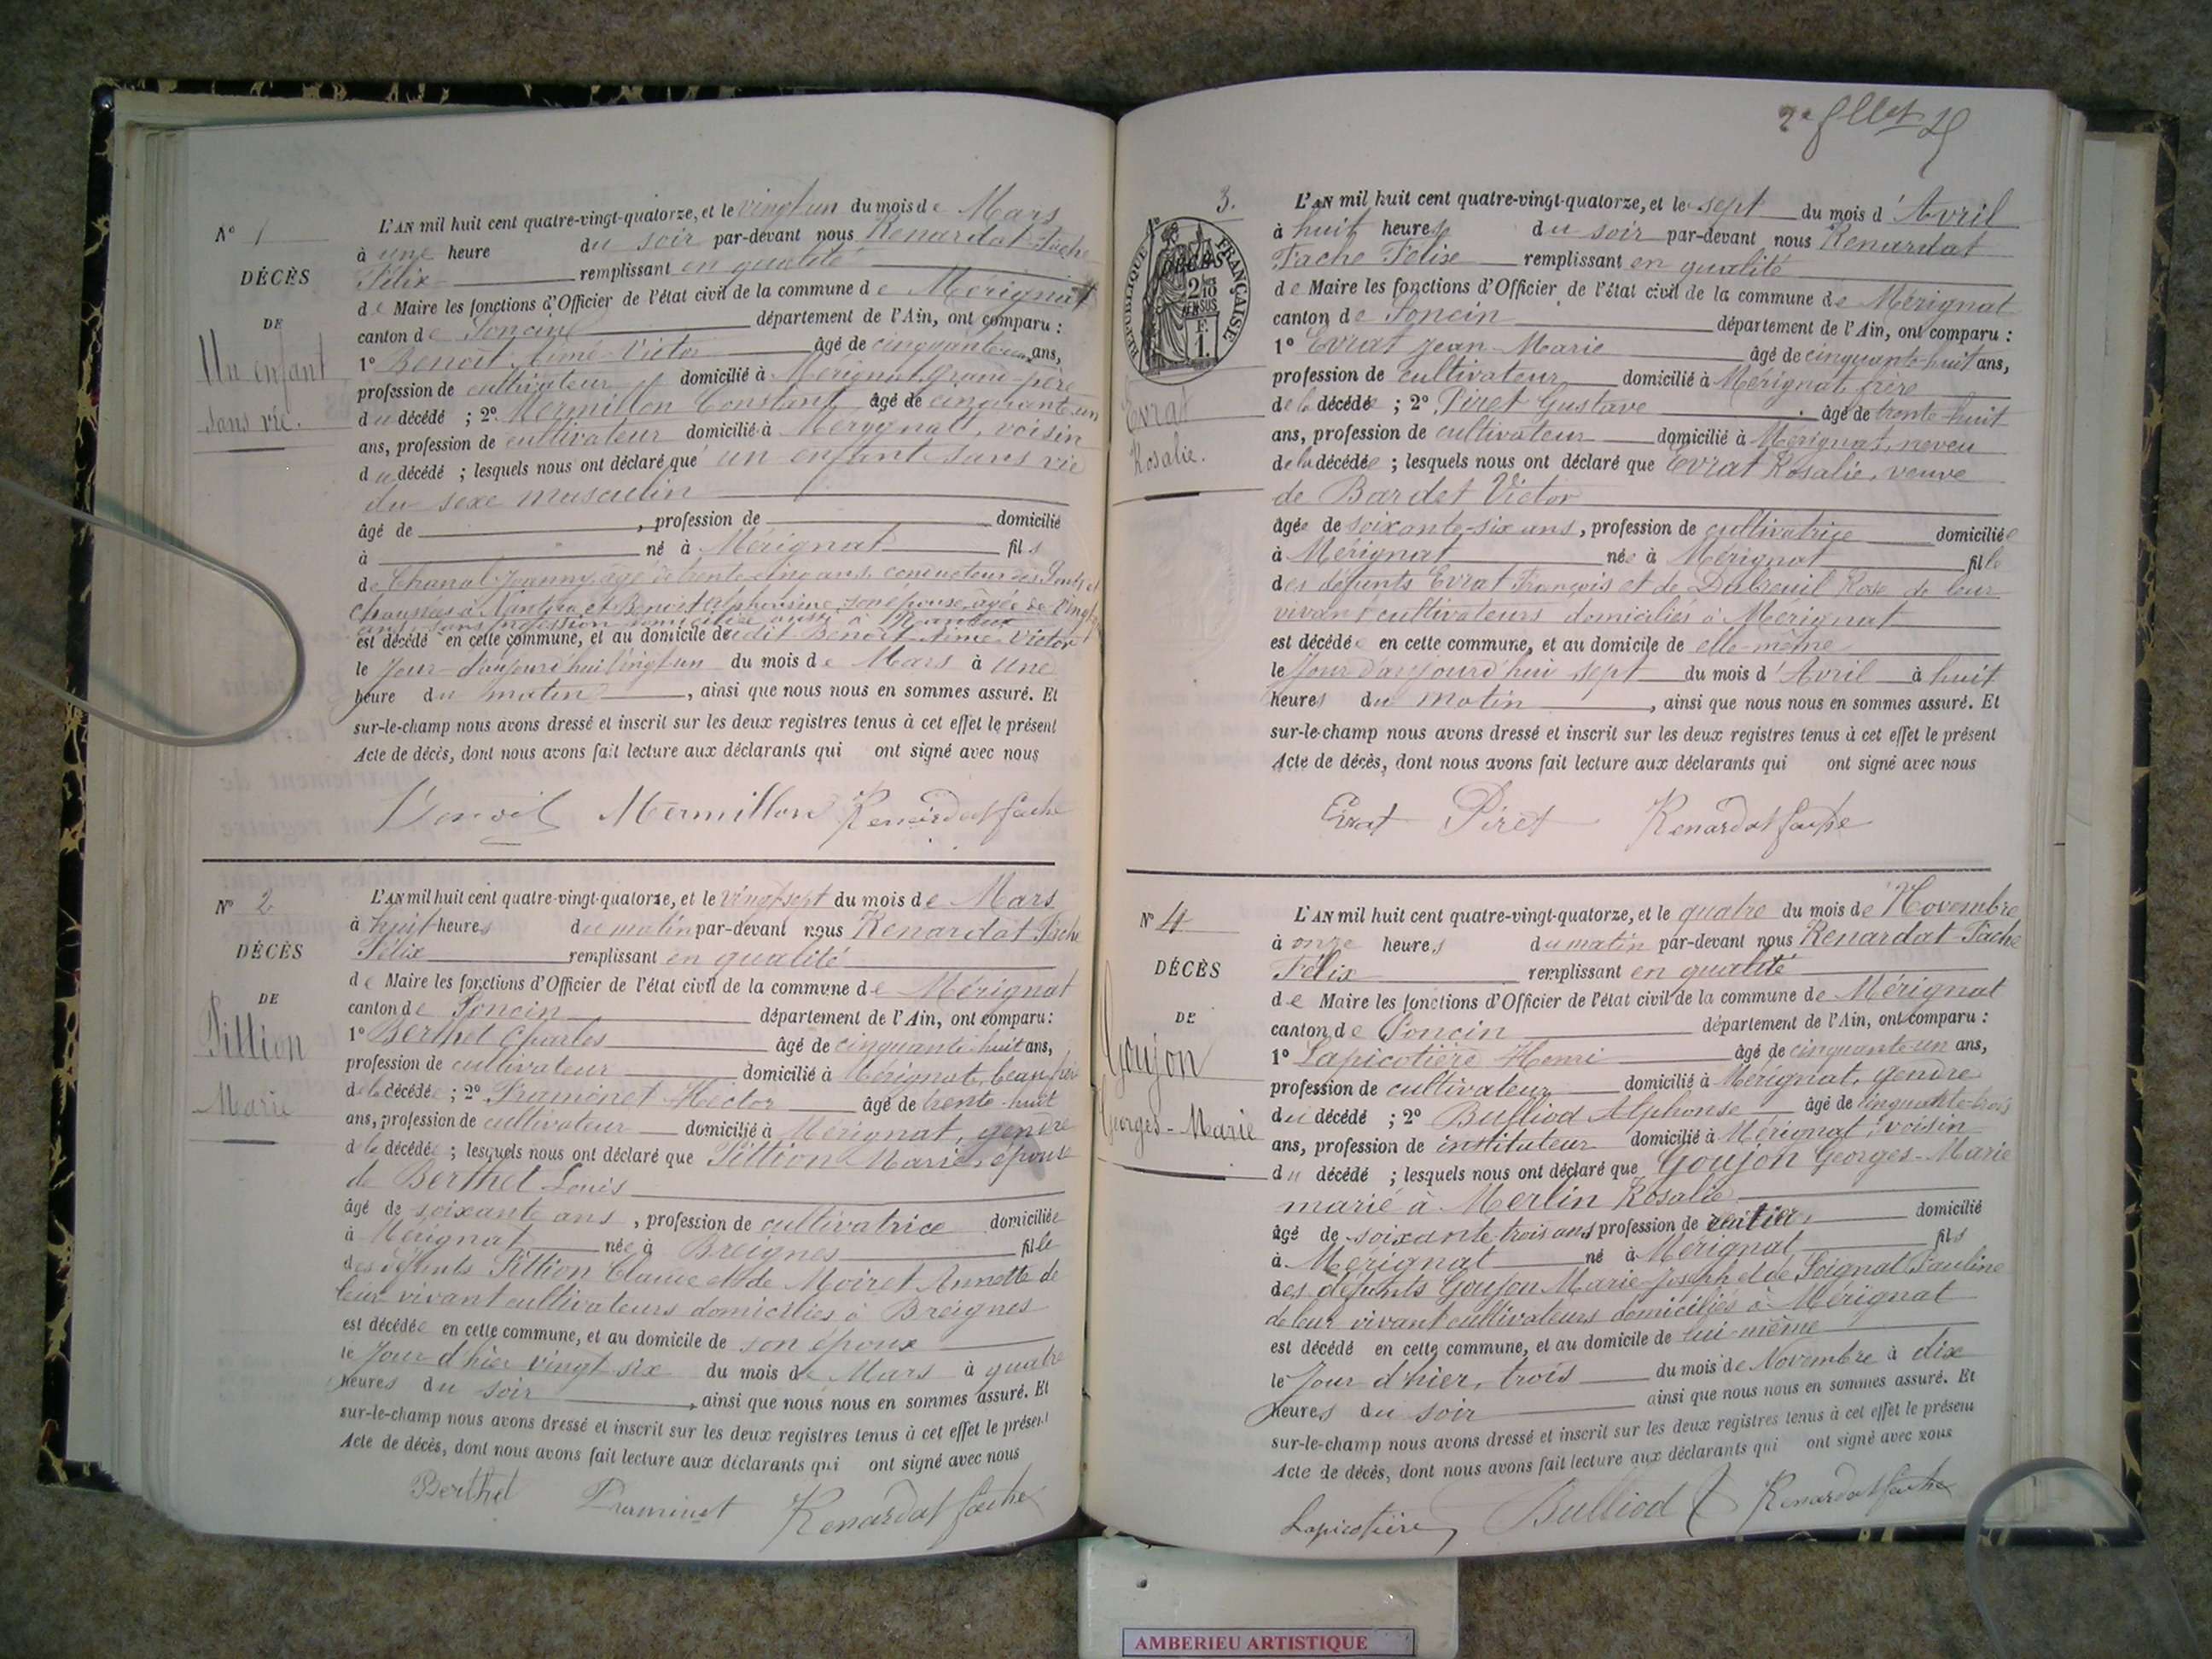 N° 1
DÉCÈS
DE
Un enfant
sans vie.
L'AN mil huit cent quatre-vingt-quatorze, et le vingt un du mois de Mars
à une heure du soir par-devant nous Renardat-Fache
Félix remplissant en qualité
de Maire les fonctions d'Officier de l'état civil de la commune de Mérignat
canton de Poncin département de l'Ain, ont comparu :
1° Benoit Aimé-Victor âgé de cinquante ans,
profession de cultivateur domicilié à Mérignat, grand-père
du décédé ; 2° Mermillon Constant âgé de cinquante-un
ans, profession de cultivateur domicilié à Mérignat, voisin
du décédé ; lesquels nous ont déclaré que un enfant sans vie
du sexe masculin
âgé de , profession de domicilié
à né à Mérignat fils
de Chanal Joanny, âgé de trente-cinq ans, conducteur des Ponts et
Chaussées à Nantua, et Benoit Alphonsine, son épouse, âgée de vingt
ans, sans profession domiciliée aussi à Nantua
est décédé en cette commune, et au domicile dudit Benoit Aimé-Victor
le jour d'aujourd'hui vingt un du mois de Mars à une
heure du matin , ainsi que nous nous en sommes assuré. Et
sur-le-champ nous avons dressé et inscrit sur les deux registres tenus à cet effet le présent
Acte de décès, dont nous avons fait lecture aux déclarants qui ont signé avec nous
Benoit Mermillon Renardat fache
N° 2
DÉCÈS
DE
Pillion
Marie
L'AN mil huit cent quatre-vingt-quatorze, et le vingt sept du mois de Mars
à huit heures du matin par-devant nous Renardat-Fache
Félix remplissant en qualité
de Maire les fonctions d'Officier de l'état civil de la commune de Mérignat
canton de Poncin département de l'Ain, ont comparu :
1° Berthet Charles âgé de cinquante-huit ans,
profession de cultivateur domicilié à Mérignat, beau-frère
de la décédée ; 2° Praminet Hector âgé de trente-huit
ans, profession de cultivateur domicilié à Mérignat, gendre
de la décédée ; lesquels nous ont déclaré que Pillion Marie, épouse
de Berthet Louis
âgé de soixante ans , profession de cultivatrice domiciliée
à Mérignat née à Breignes fille
des défunts Pillion Claude et de Moiret Annette de
leur vivant cultivateurs domiciliés à Breignes
est décédée en cette commune, et au domicile de son époux
le jour d'hier vingt six du mois de Mars à quatre
heures du soir , ainsi que nous nous en sommes assuré. Et
sur-le-champ nous avons dressé et inscrit sur les deux registres tenus à cet effet le présent
Acte de décès, dont nous avons fait lecture aux déclarants qui ont signé avec nous
Berthet Praminet Renardat fache
2e fllet
3.
RÉPUBLIQUE FRANÇAISE
Evrat
Rosalie.
L'AN mil huit cent quatre-vingt-quatorze, et le sept du mois d'Avril
à huit heures du soir par-devant nous Renardat
Fache Félix remplissant en qualité
de Maire les fonctions d'Officier de l'état civil de la commune de Mérignat
canton de Poncin département de l'Ain, ont comparu :
1° Evrat Jean-Marie âgé de cinquante-huit ans,
profession de cultivateur domicilié à Mérignat, frère
de la décédée ; 2° Piret Gustave âgé de trente-huit
ans, profession de cultivateur domicilié à Mérignat, neveu
de la décédée ; lesquels nous ont déclaré que Evrat Rosalie, veuve
de Bardet Victor
âgée de soixante-six ans, profession de cultivatrice domiciliée
à Mérignat née à Mérignat fille
des défunts Evrat François et de Dubreuil Rose de leur
vivant cultivateurs domiciliés à Mérignat
est décédée en cette commune, et au domicile de elle-même
le jour d'aujourd'hui sept du mois d'Avril à huit
heures du matin , ainsi que nous nous en sommes assuré. Et
sur-le-champ nous avons dressé et inscrit sur les deux registres tenus à cet effet le présent
Acte de décès, dont nous avons fait lecture aux déclarants qui ont signé avec nous
Evrat Piret Renardat fache
N° 4
DÉCÈS
DE
Goujon
Georges-Marie
L'AN mil huit cent quatre-vingt-quatorze, et le quatre du mois de Novembre
à onze heures du matin par-devant nous Renardat-Fache
Félix remplissant en qualité
de Maire les fonctions d'Officier de l'état civil de la commune de Mérignat
canton de Poncin département de l'Ain, ont comparu :
1° Lapicotière Henri âgé de cinquante-un ans,
profession de cultivateur domicilié à Mérignat, gendre
du décédé ; 2° Bulliod Alphonse âgé de cinquante-trois
ans, profession de instituteur domicilié à Mérignat, voisin
du décédé ; lesquels nous ont déclaré que Goujon Georges-Marie
marié à Merlin Rosalie
âgé de soixante-trois ans profession de rentier, domicilié
à Mérignat né à Mérignat fils
des défunts Goujon Marie-Joseph et de Poignat Pauline
de leur vivant cultivateurs domiciliés à Mérignat
est décédé en cette commune, et au domicile de lui-même
le jour d'hier, trois du mois de Novembre à dix
heures du soir ainsi que nous nous en sommes assuré. Et
sur-le-champ nous avons dressé et inscrit sur les deux registres tenus à cet effet le présent
Acte de décès, dont nous avons fait lecture aux déclarants qui ont signé avec nous
Lapicotière Bulliod Renardat fache
AMBERIEU ARTISTIQUE